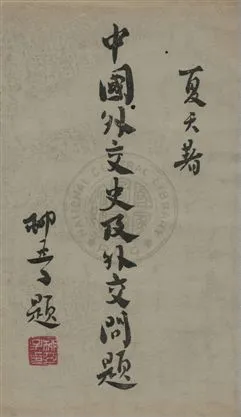 夏天著
中國外交史及外交問題
柳亞子題
NATIONAL CENTRAL LIBRARY